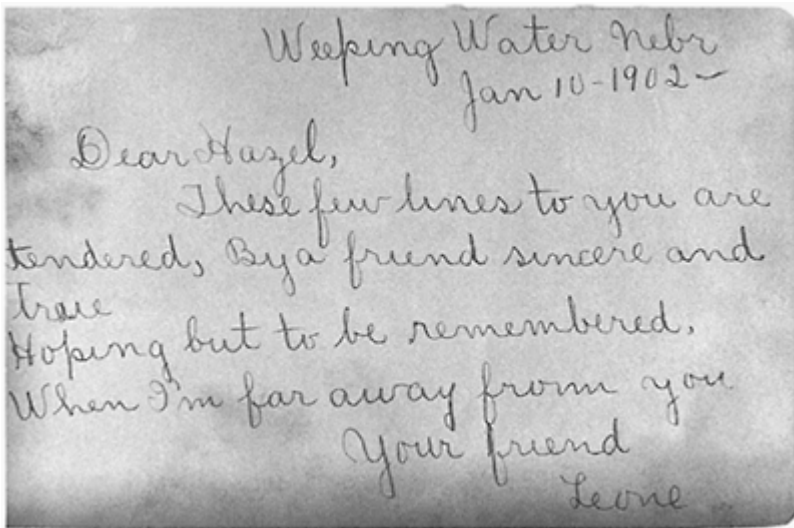 Weeping Water Nebr
Jan 10-1902-
Dear Hazel,
These few lines to you are
tendered, By a friend sincere and
true
Hoping but to be remembered.
When I'm far away from you
Your friend
Leone